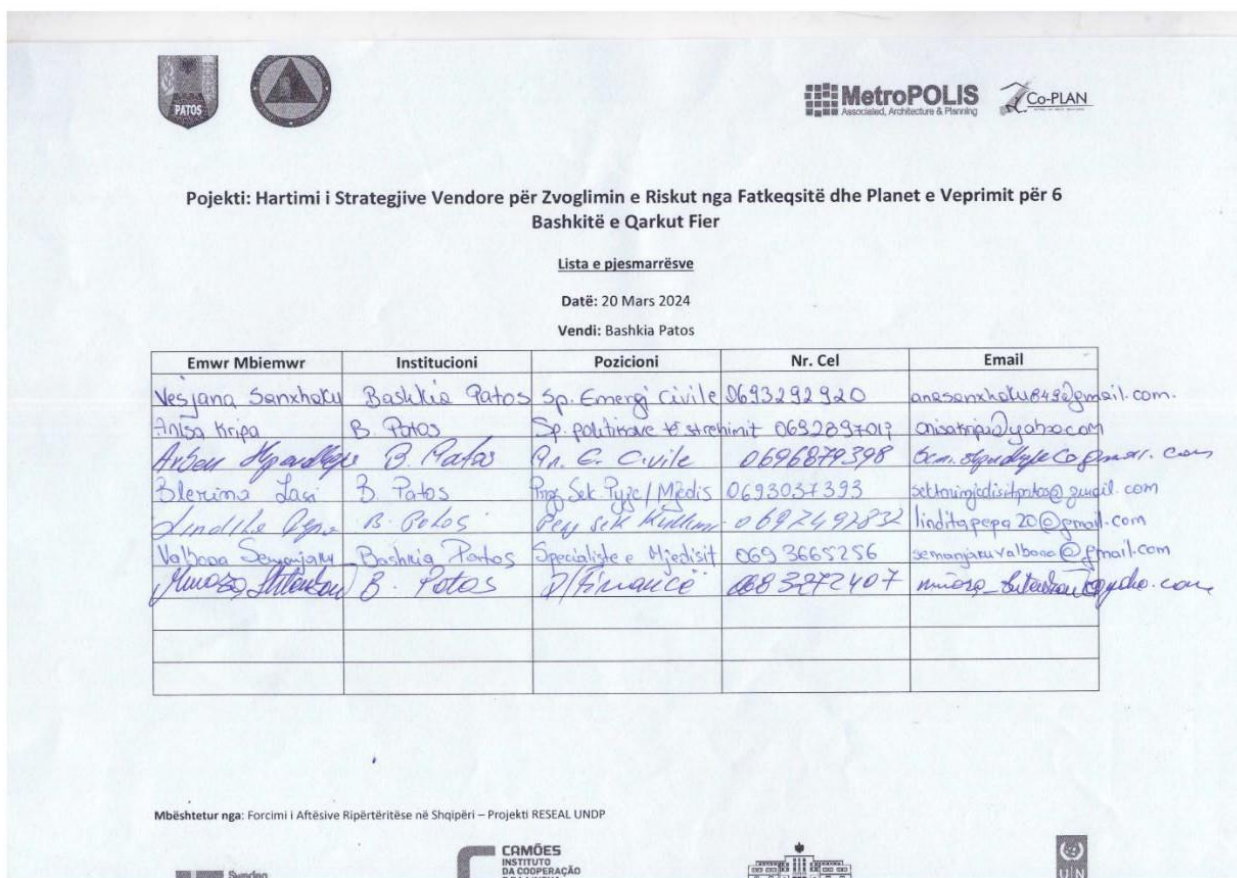 PATOS
MetroPOLIS
Associated, Architecture & Planning
Co-PLAN
Pojekti: Hartimi i Strategjive Vendore për Zvoglimin e Riskut nga Fatkeqsitë dhe Planet e Veprimit për 6
Bashkitë e Qarkut Fier
Lista e pjesmarrësve
Datë: 20 Mars 2024
Vendi: Bashkia Patos
Emwr Mbiemwr Institucioni Pozicioni Nr. Cel Email
Vesjana Sanxhaku Bashkia Patos Sp. Emergj Civile 0693292920
Anisa Kripa B. Patos Sp. politikave të strehimit 0692897017
Arben B. Patos C. Civile 0696879398
Blerima Laçi B. Patos Sek. Pyje/Mjedis 0693037393
B. Patos Sek 0697492832 linditapepa20@gmail.com
Valbona Semanjaku Bashkia Patos Specialiste e Mjedisit 0693665256 semanjakuvalbona@gmail.com
B. Patos D/Financë 0683272407
Mbështetur nga: Forcimi i Aftësive Ripërtëritëse në Shqipëri – Projekti RESEAL UNDP
Sweden
CAMÕES
INSTITUTO
DA COOPERAÇÃO
UN